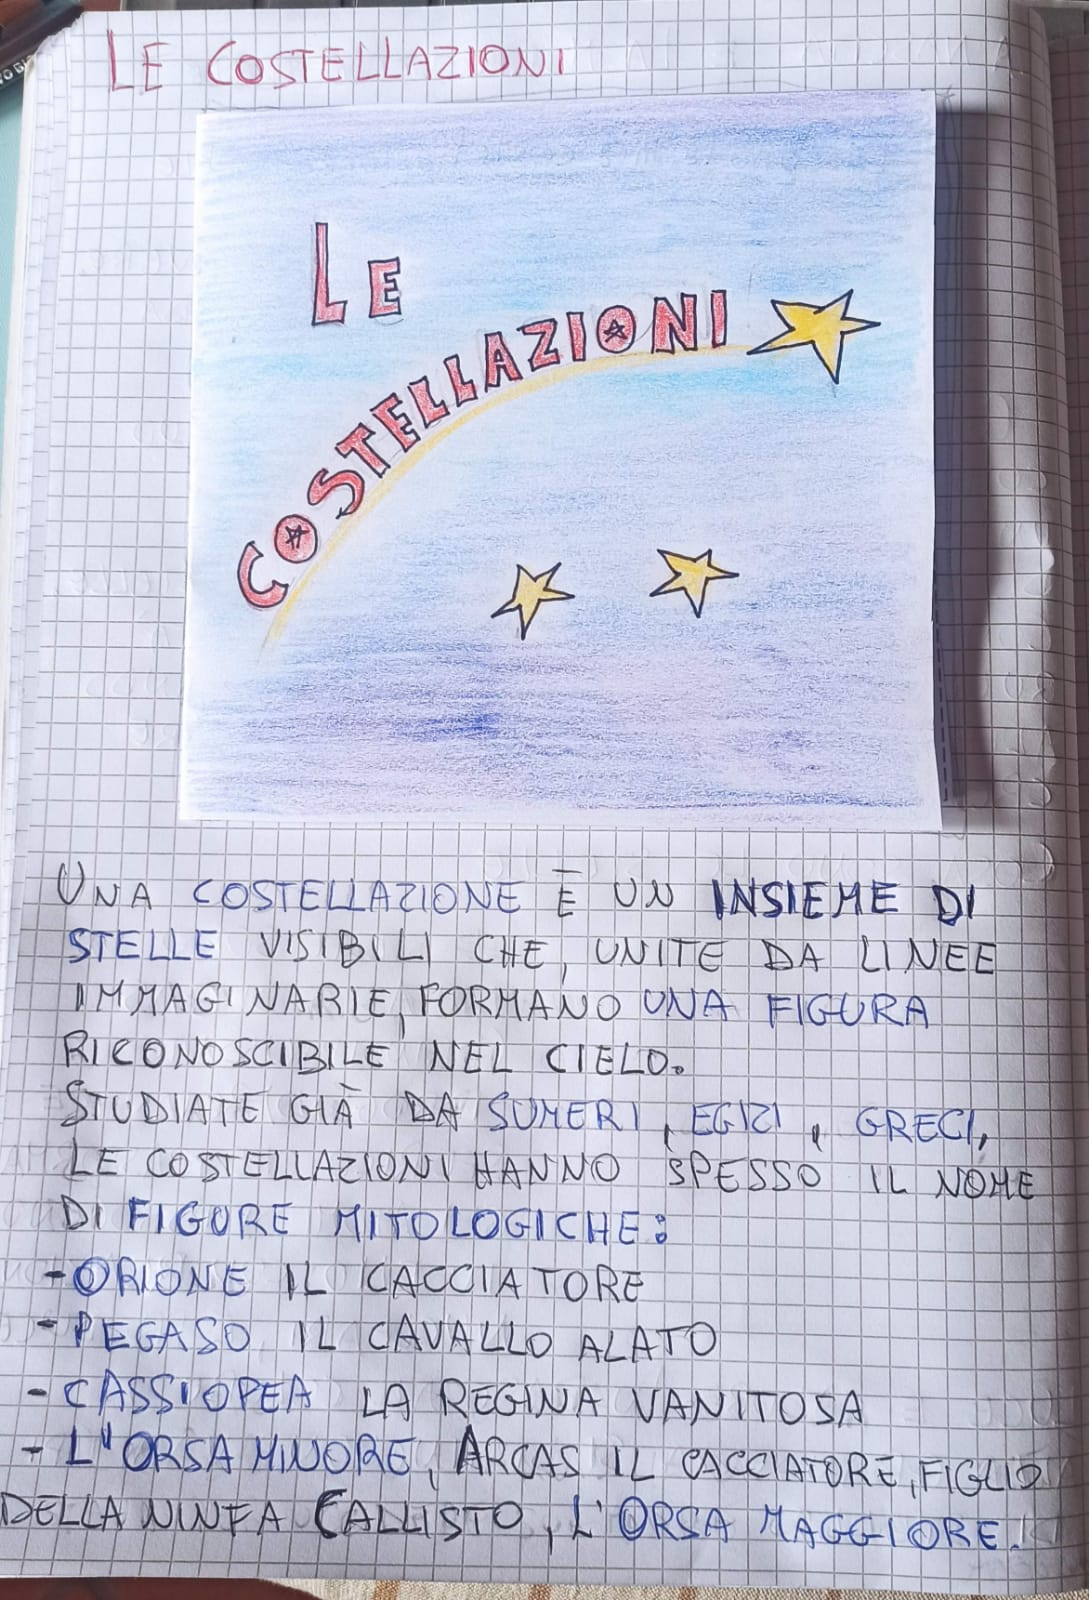 LE COSTELLAZIONI
LE
COSTELLAZIONI
UNA COSTELLAZIONE È UN INSIEME DI
STELLE VISIBILI CHE, UNITE DA LINEE
IMMAGINARIE, FORMANO UNA FIGURA
RICONOSCIBILE NEL CIELO.
STUDIATE GIÀ DA SUMERI, EGIZI, GRECI,
LE COSTELLAZIONI HANNO SPESSO IL NOME
DI FIGURE MITOLOGICHE:
- ORIONE IL CACCIATORE
- PEGASO IL CAVALLO ALATO
- CASSIOPEA LA REGINA VANITOSA
- L'ORSA MINORE, ARCAS IL CACCIATORE, FIGLIO
DELLA NINFA CALLISTO, L'ORSA MAGGIORE.